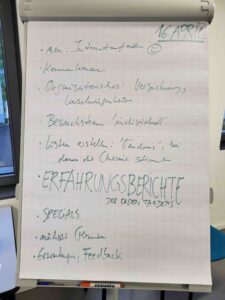 16. APRIL
• neu: Internetauftreten ☺
• Kennenlernen
• Organisatorisches: Versicherung,
• Besuchsteam 'individuell'
• Listen erstellen: 'Tandems', bei
denen die Chemie stimmt
• ERFAHRUNGSBERICHTE
DER ERSTEN TANDEMS
• SPECIALS
• nächster Termin
Feedback